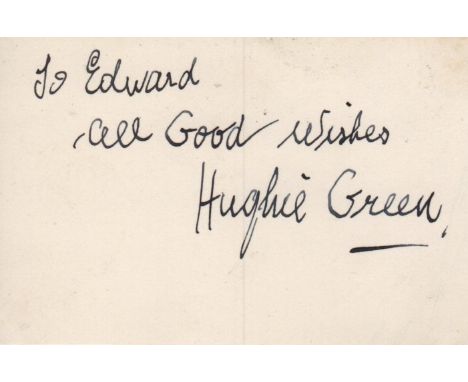 To Edward
All Good Wishes
Hughie Green